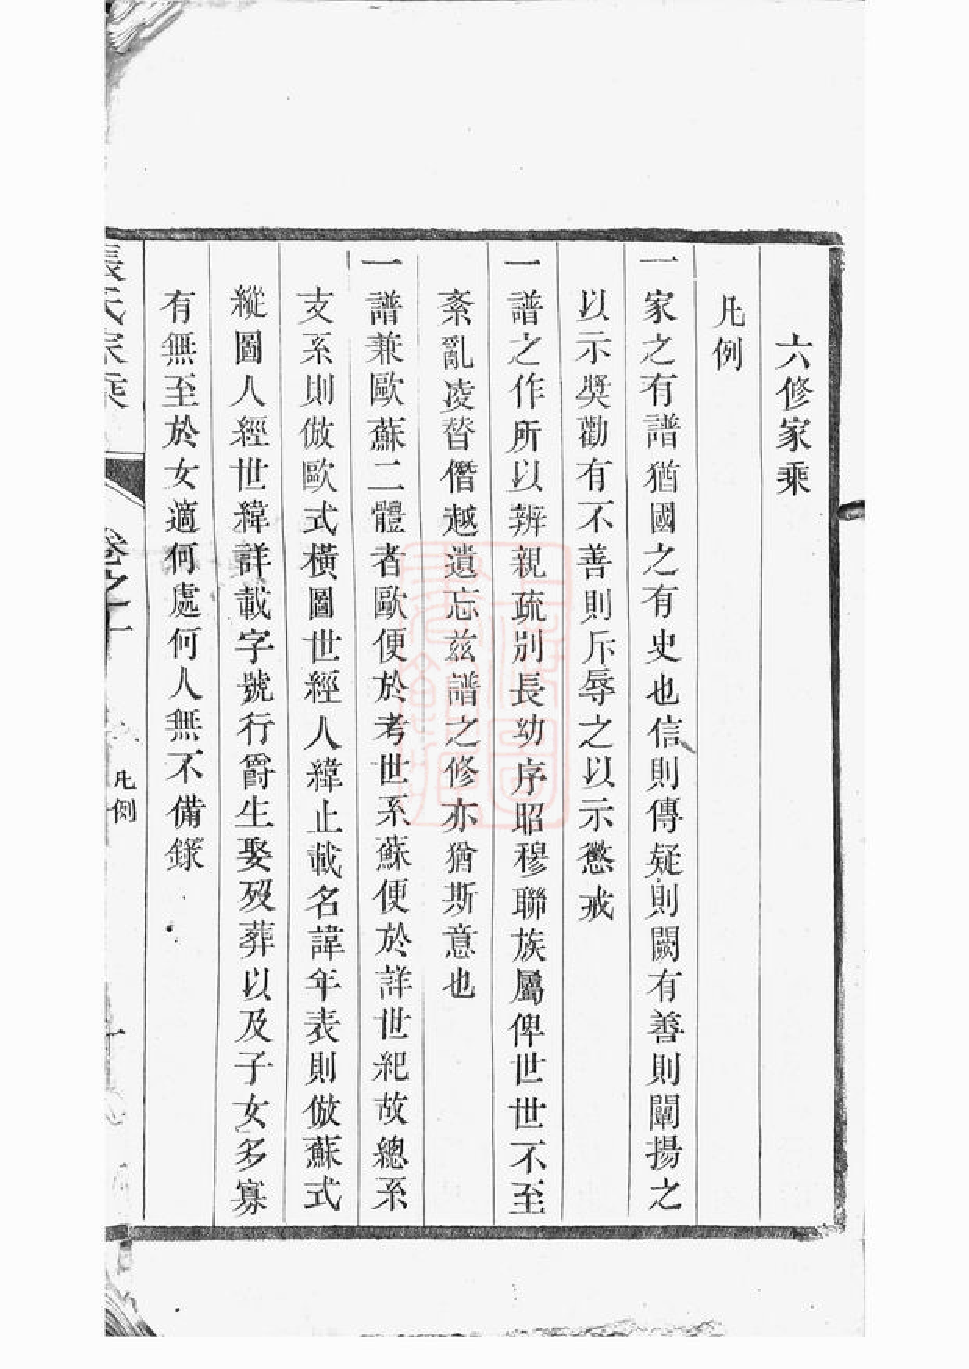 六修家乘
凡例
一家之有譜猶國之有史也信則傳疑則闕有善則闡揚之
以示奬勸有不善則斥辱之以示懲戒
一譜之作所以辨親疏別長幼序昭穆聯族屬俾世世不至
紊亂凌替僭越遺忘兹譜之修亦猶斯意也
一譜兼歐蘇二體者歐便於考世系蘇便於詳世紀故總系
支系則倣歐式橫圖世經人緯止載名諱年表則倣蘇式
縱圖人經世緯詳載字號行爵生娶歿葬以及子女多寡
有無至於女適何處何人無不備錄
張氏家乘
卷之
凡例
一